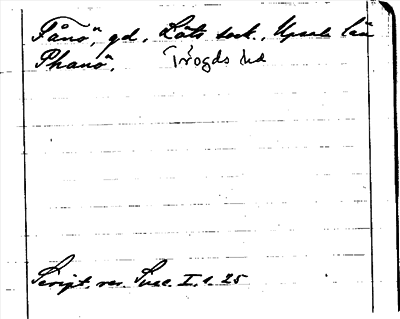 Fånö, gd, Löts sock. Upsala län
Phanö. Trögds hd
Script. rer. Svec. I. s. 25